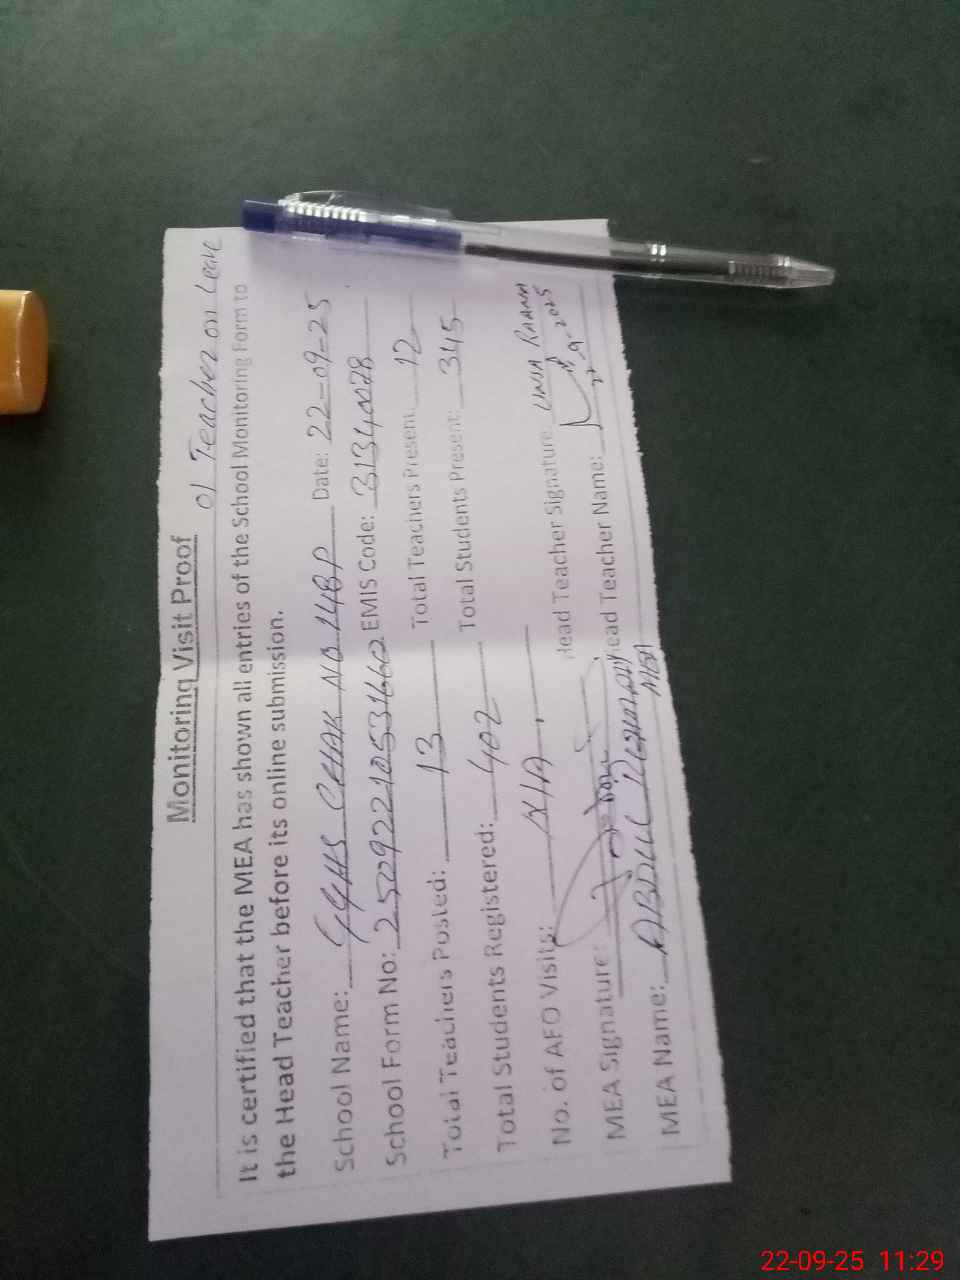 Monitoring Visit Proof
01 Teacher on Leave
It is certified that the MEA has shown all entries of the School Monitoring Form to
the Head Teacher before its online submission.
School Name: GGHS CHAK NO 14BP Date: 22-09-25
School Form No: 25092210531662 EMIS Code: 31340078
Total Teachers Posted: 13 Total Teachers Present 12
Total Students Registered: 402 Total Students Present: 345
No. of AFO Visits: N/A
MEA Signature: Head Teacher Signature: UNSA RAANA
MEA Name: ABDUL Head Teacher Name: 22-9-2025
MEA
22-09-25 11:29